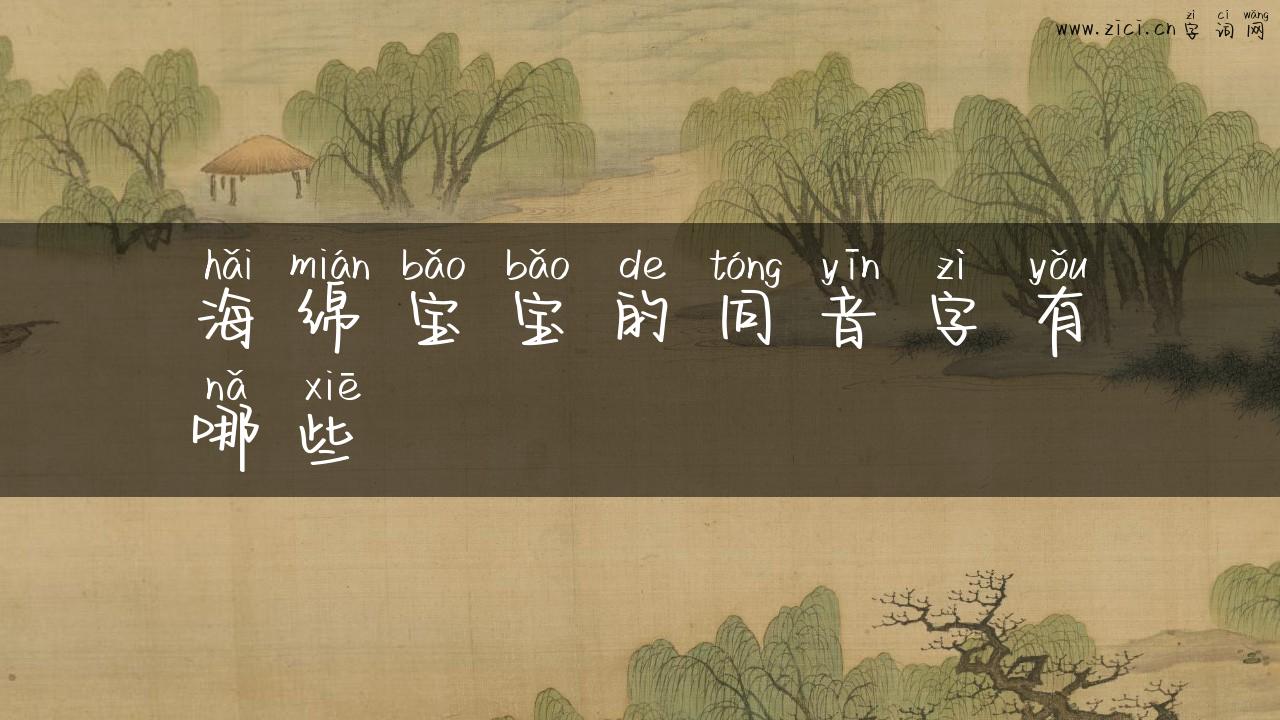 zì cí wǎng
www.zici.cn 字词网
hǎi mián bǎo bǎo de tóng yīn zì yǒu
海绵宝宝的同音字有
nǎ xiē
哪些